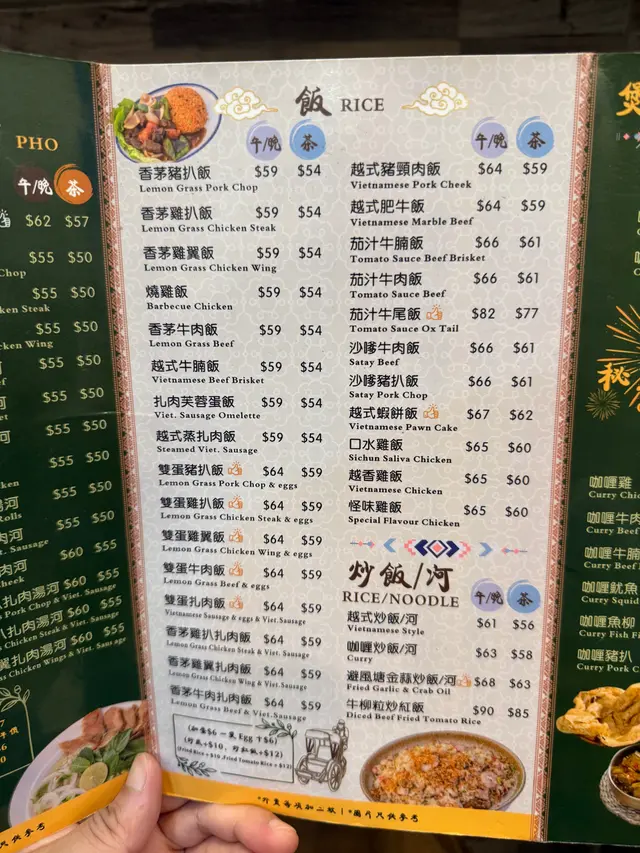 PHO
午/晚 茶
$62 $57
$55 $50
Chop
$55 $50
ken Steak
$55 $50
cken Wing
$55 $50
$55 $50
$55 $50
$55 $50
河 $55 $50
Rolls
肉河 $55 $50
t. Sausage
河 $60 $55
Cheek
扒扎肉湯河 $60 $55
Pork Chop & Viet. Sausage
扒扎肉湯河 $60 $55
Chicken Steak & Viet. Sausage
翼扎肉湯河 $60 $55
Chicken Wings & Viet. Sausage
飯 RICE
午/晚 茶
香茅豬扒飯 $59 $54
Lemon Grass Pork Chop
香茅雞扒飯 $59 $54
Lemon Grass Chicken Steak
香茅雞翼飯 $59 $54
Lemon Grass Chicken Wing
燒雞飯 $59 $54
Barbecue Chicken
香茅牛肉飯 $59 $54
Lemon Grass Beef
越式牛腩飯 $59 $54
Vietnamese Beef Brisket
扎肉芙蓉蛋飯 $59 $54
Viet. Sausage Omelette
越式蒸扎肉飯 $59 $54
Steamed Viet. Sausage
雙蛋豬扒飯 $64 $59
Lemon Grass Pork Chop & eggs
雙蛋雞扒飯 $64 $59
Lemon Grass Chicken Steak & eggs
雙蛋雞翼飯 $64 $59
Lemon Grass Chicken Wing & eggs
雙蛋牛肉飯 $64 $59
Lemon Grass Beef & eggs
雙蛋扎肉飯 $64 $59
Vietnamese Sausage & eggs & Viet. Sausage
香茅雞扒扎肉飯 $64 $59
Lemon Grass Chicken Steak & Viet. Sausage
香茅雞翼扎肉飯 $64 $59
Lemon Grass Chicken Wing & Viet. Sausage
香茅牛肉扎肉飯 $64 $59
Lemon Grass Beef & Viet.Sausage
(加蛋$6 一隻 Egg +$6)
(炒底+$10, 炒紅飯+$12)
(Fried Rice + $10 ,Fried Tomato Rice + $12)
午/晚 茶
越式豬頸肉飯 $64 $59
Vietnamese Pork Cheek
越式肥牛飯 $64 $59
Vietnamese Marble Beef
茄汁牛腩飯 $66 $61
Tomato Sauce Beef Brisket
茄汁牛肉飯 $66 $61
Tomato Sauce Beef
茄汁牛尾飯 $82 $77
Tomato Sauce Ox Tail
沙嗲牛肉飯 $66 $61
Satay Beef
沙嗲豬扒飯 $66 $61
Satay Pork Chop
越式蝦餅飯 $67 $62
Vietnamese Pawn Cake
口水雞飯 $65 $60
Sichun Saliva Chicken
越香雞飯 $65 $60
Vietnamese Chicken
怪味雞飯 $65 $60
Special Flavour Chicken
炒飯/河
RICE/NOODLE 午/晚 茶
越式炒飯/河 $61 $56
Vietnamese Style
咖喱炒飯/河 $63 $58
Curry
避風塘金蒜炒飯/河 $68 $63
Fried Garlic & Crab Oil
牛柳粒炒紅飯 $90 $85
Diced Beef Fried Tomato Rice
*圖片只供參考
煲
秘
咖喱雞
Curry Chick
咖喱牛肉
Curry Beef
咖喱牛腩
Curry Beef
咖喱魷魚
Curry Squid
咖喱魚柳
Curry Fish F
咖喱豬扒
Curry Pork C